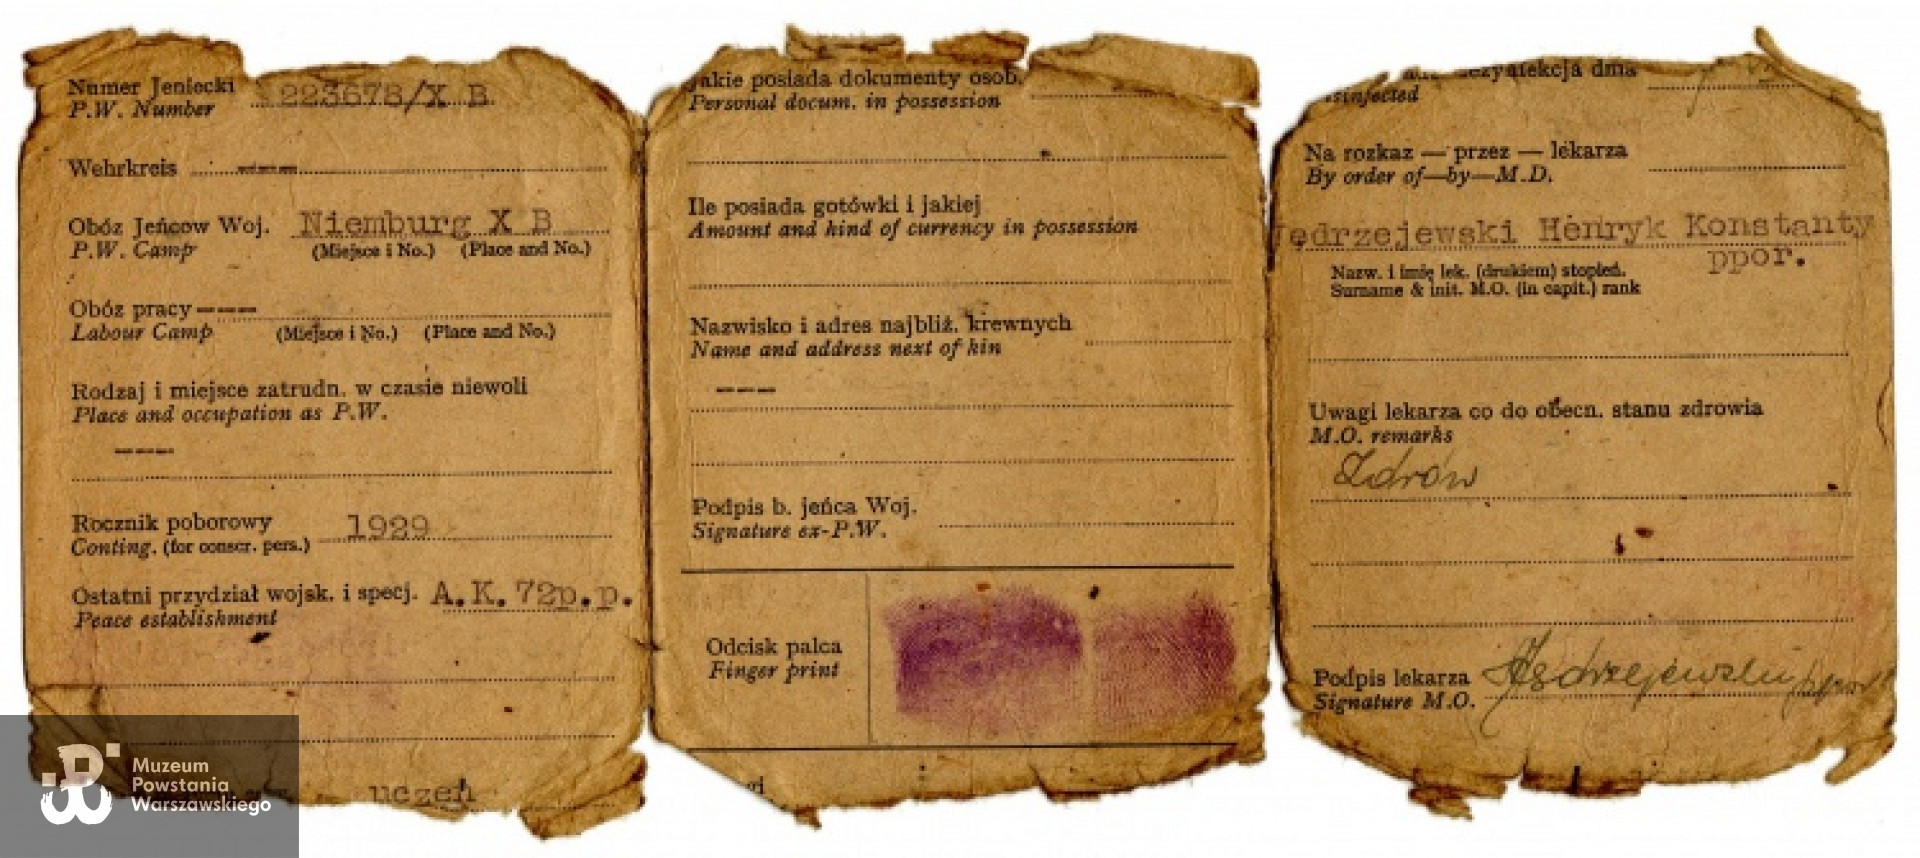 Numer Jeniecki 223678/X B
P.W. Number
Wehrkreis ---
Obóz Jeńcow Woj. Niemburg X B
P.W. Camp (Miejsce i No.) (Place and No.)
Obóz pracy ---
Labour Camp (Miejsce i No.) (Place and No.)
Rodzaj i miejsce zatrudn. w czasie niewoli
Place and occupation as P.W.
---
Rocznik poborowy 1929
Conting. (for conscr. pers.)
Ostatni przydział wojsk. i specj. A.K. 72p.p.
Peace establishment
uczeń
Jakie posiada dokumenty osob.
Personal docum. in possession
Ile posiada gotówki i jakiej
Amount and kind of currency in possession
Nazwisko i adres najbliż. krewnych
Name and address next of kin
---
Podpis b. jeńca Woj.
Signature ex-P.W.
Odcisk palca
Finger print
dezynfekcja dnia
isinfected
Na rozkaz — przez — lekarza
By order of—by—M.D.
Jędrzejewski Henryk Konstanty
ppor.
Nazw. i imię lek. (drukiem) stopień.
Surname & init. M.O. (in capit.) rank
Uwagi lekarza co do obecn. stanu zdrowia
M.O. remarks
Zdrów
Podpis lekarza HJędrzejewski ppor
Signature M.O.
Muzeum
Powstania
Warszawskiego